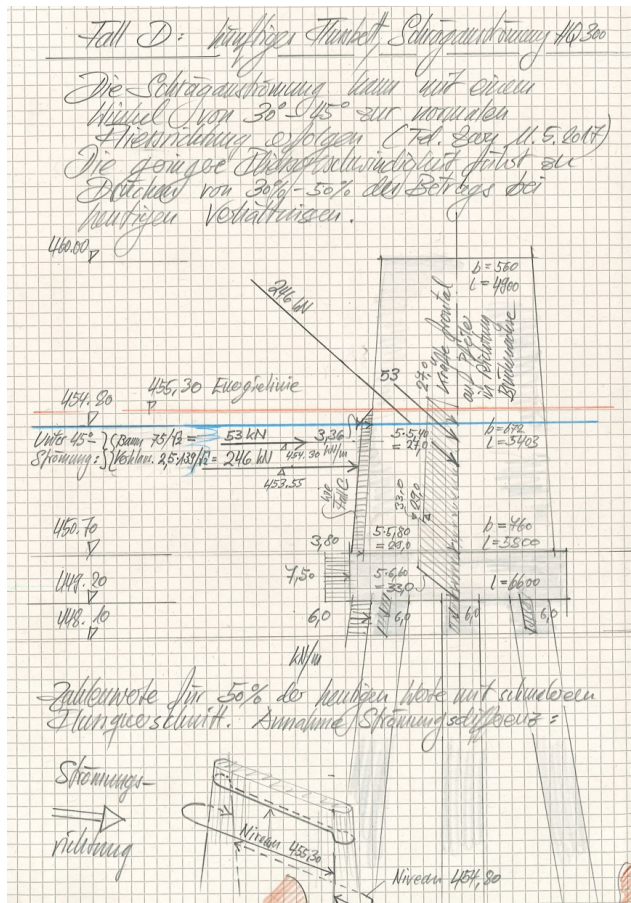 Fall D: künftiges Flussbett, Schräganströmung HQ300
Die Schräganströmung kann mit einem
Winkel von 30°-45° zur normalen
Fliessrichtung erfolgen (Tel. 11.5.2017)
Die geringe Fliessgeschwindigkeit führt zu
Drücken von 30%-50% des Betrags bei
heutigen Verhältnissen.
460.00
b=560
L=4900
246 kN
Kräfte frontal
auf Pfeiler
in Richtung
53
27,0
455,30 Energielinie
454.80
b=672
L=5403
Unter 45°-
Strömung:
(Baum 75/√2 = 53 kN
= 246 kN
3,36
kN/m
454.30
453.55
5·5,40
=27,0
wie
Fall C
33,0
29,0
450.70
3,80
5·5,80
=29,0
b=760
L=5800
449.20
7,50
5·6,60
=33,0
L=6600
448.10
6,0
6,0
6,0
6,0
kN/m
Zahlenwerte für 50% der heutigen Werte mit schmalerem
Flussquerschnitt. Annahme Strömungsdifferenz:
Strömungs-
richtung
Niveau 455,30
Niveau 454,80